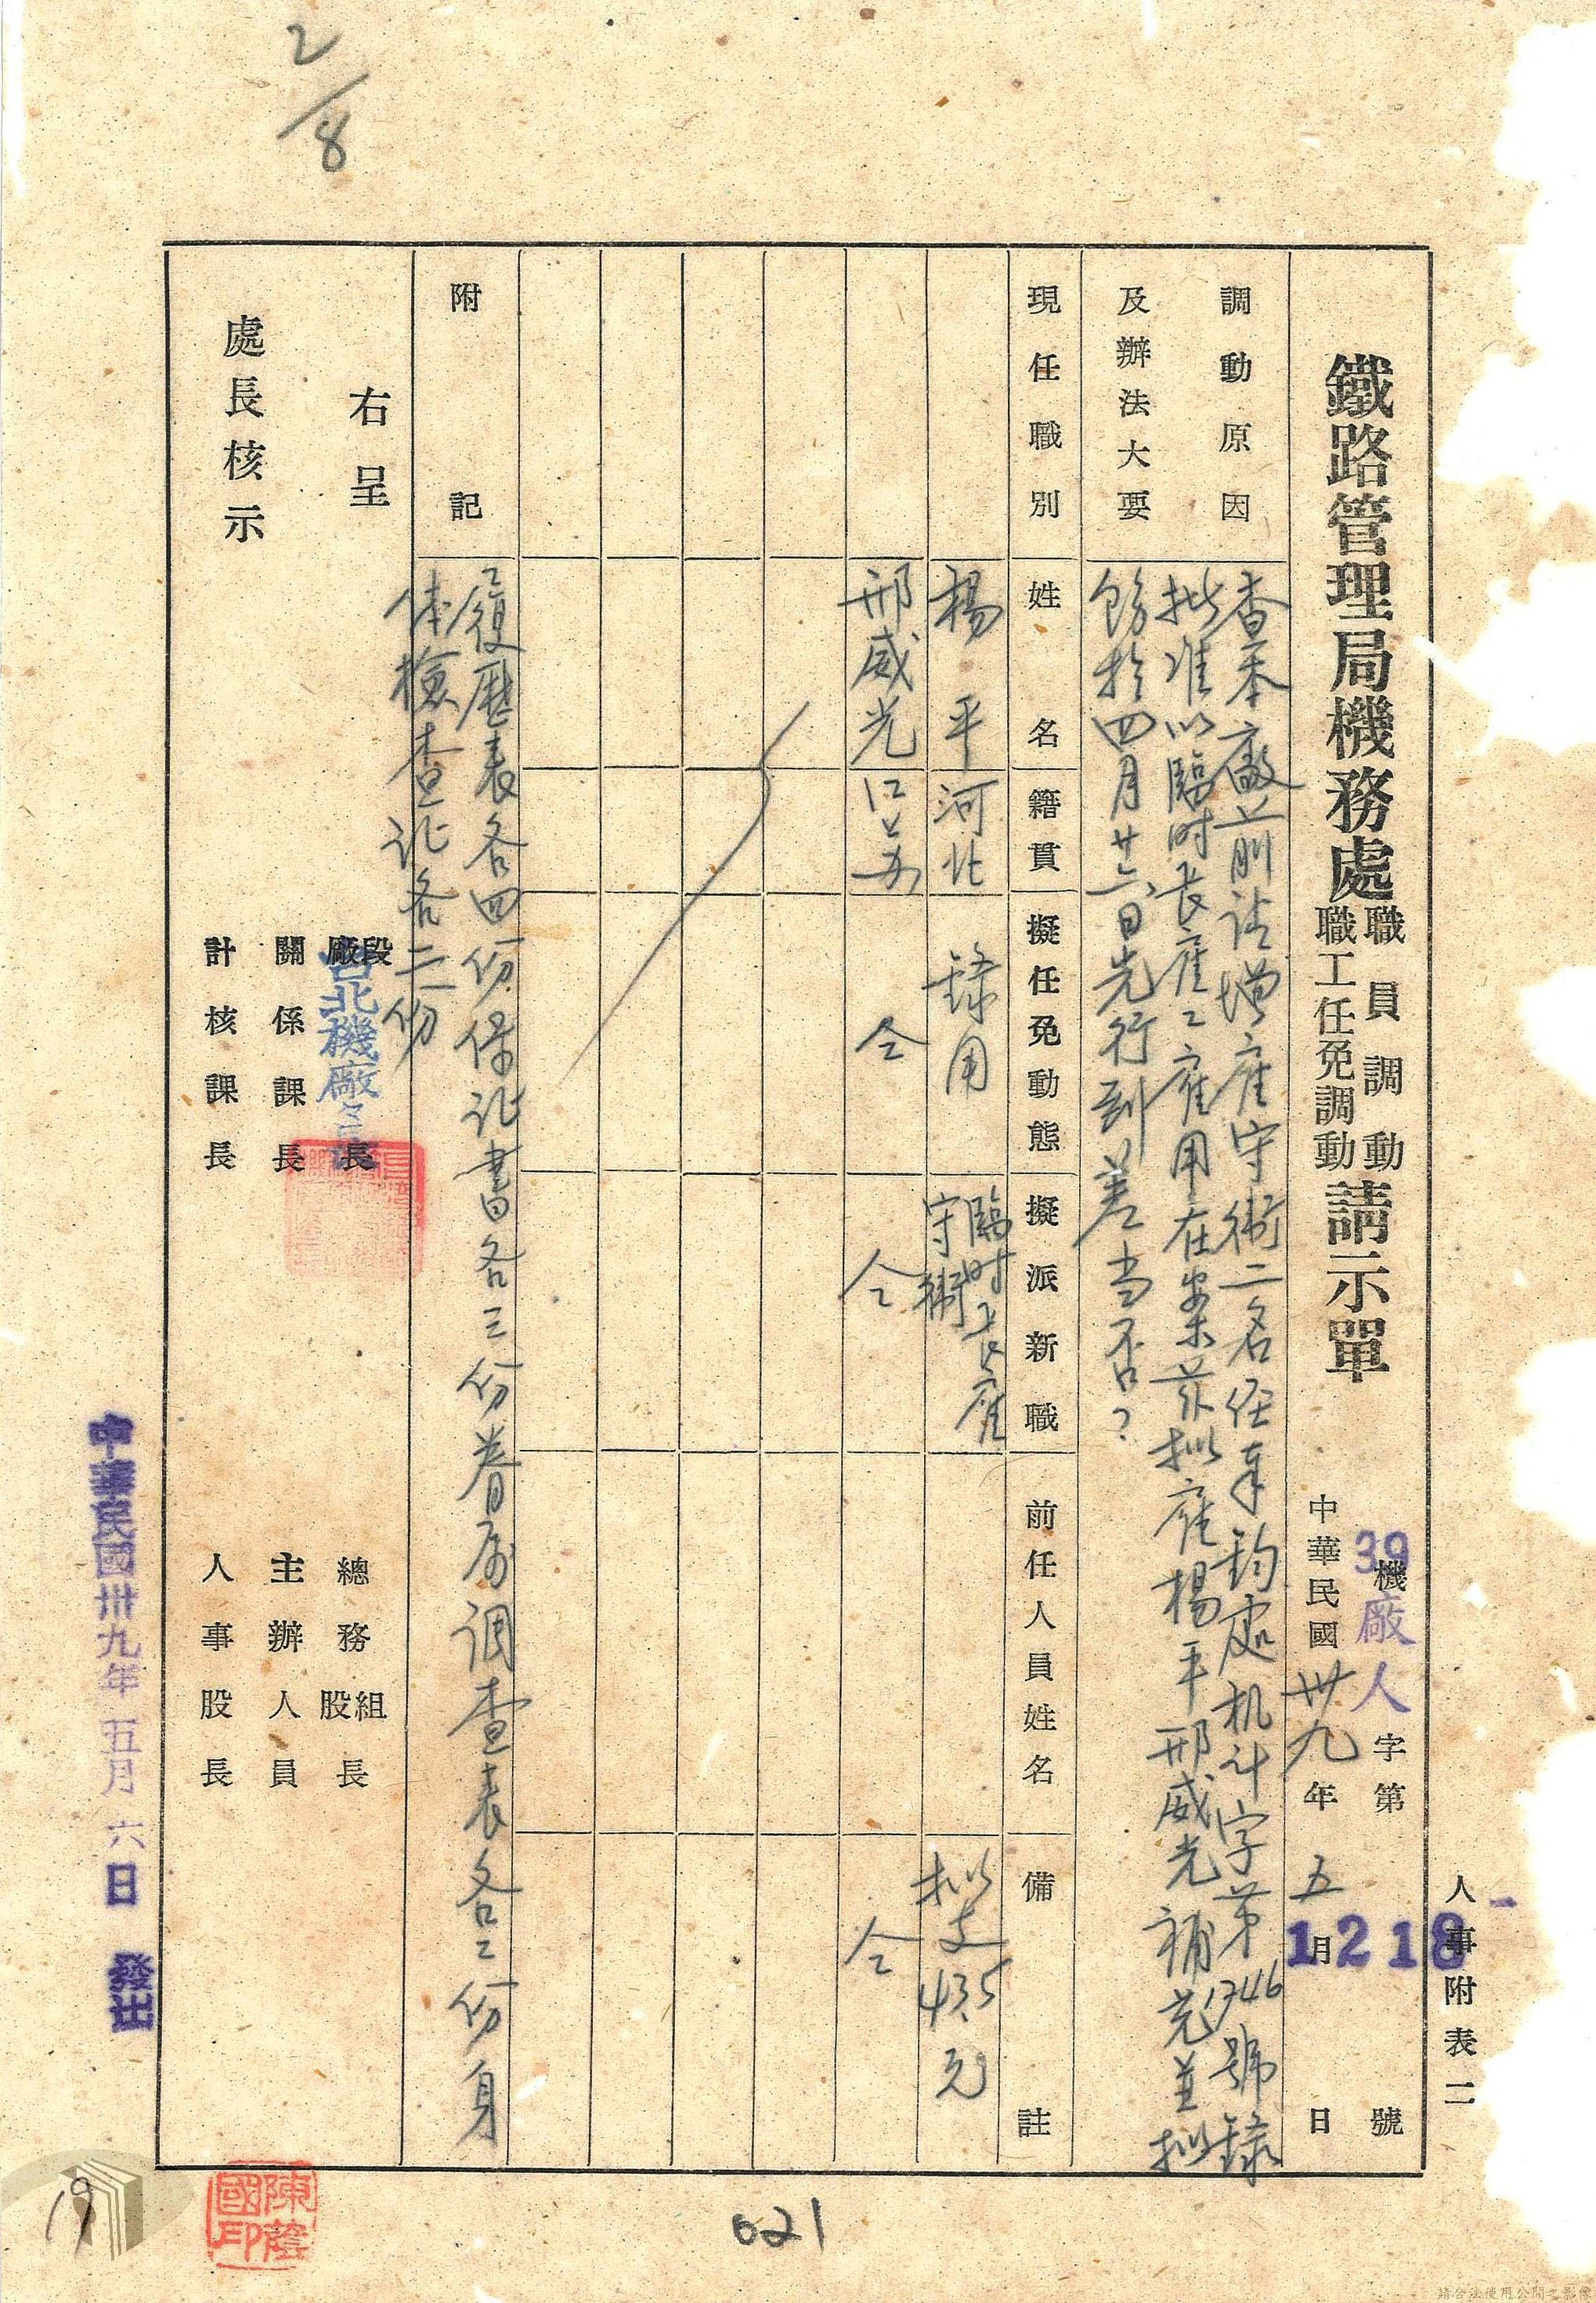 2/8
人事附表二
39機廠人字第1218號
鐵路管理局機務處職員調動職工任免調動請示單
中華民國卅九年五月 日
調動原因及辦法大要
查本廠前請增雇守衛二名經奉鈞處机計字第1746號錄
批准以臨时長雇工雇用在案茲拟雇楊平邢威光補充並拟
飭於四月廿六日先行到差当否?
現任職別
姓名
籍貫
擬任免動態
擬派新職
前任人員姓名
備註
楊平 河北 錄用 臨时長雇守衛 拟支43.5元
邢威光 江蘇 仝 仝 仝
附記
履歷表各四份保证書各三份眷屬调查表各二份身
体檢查证各二份
右呈
段廠長
台北機廠
總務組股長
關係課長
主辦人員
處長核示
計核課長
人事股長
中華民國卅九年五月六日 發出
陳蔭國印
19
021
請合法使用公開之影像